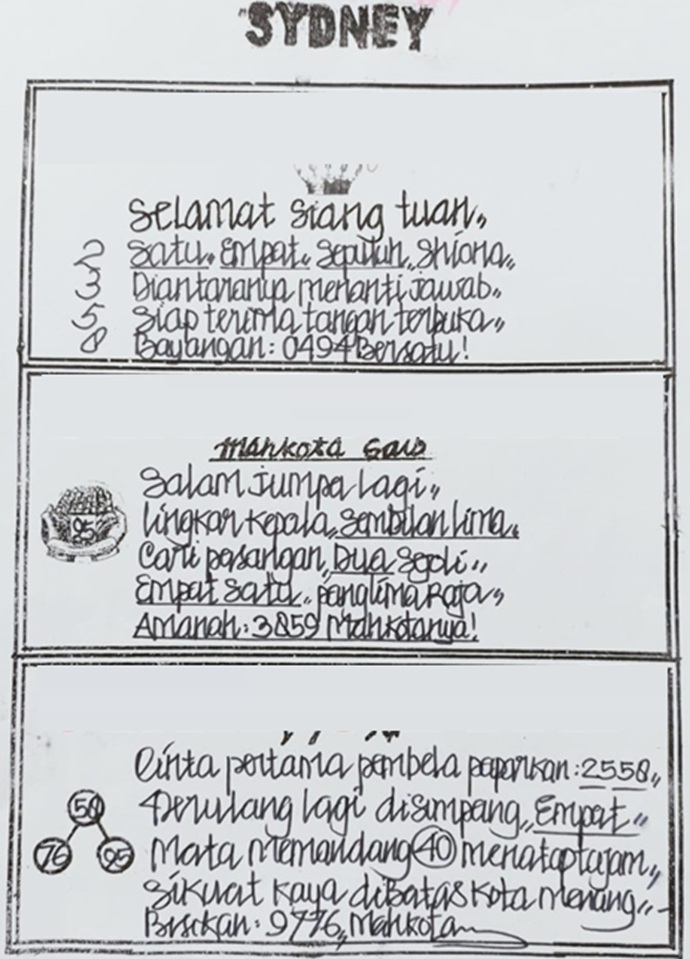 "SYDNEY
Selamat siang tuan,,
Satu. Empat. Sepuluh,, Shiona,,
Diantaranya menanti jawab.
Siap terima tangan terbuka,,
Bayangan: 0494 Bersatu!
2358
Mahkota
Salam jumpa lagi,,
Lingkar kepala,, Sembilan lima.
Cari pasangan,, Dua Sgoli,,
Empat satu,, panglima Raja,,
Amanah: 3859 Mahkotanya!
95
Cinta pertama pembela paparkan: 2558,,
Berulang lagi disimpang,, Empat,,
Mata memandang 40 menatap tajam,,
Sikuat kaya diBatas Kota menang,,-
Bisikan: 9776,, Mahkota
50
76 95